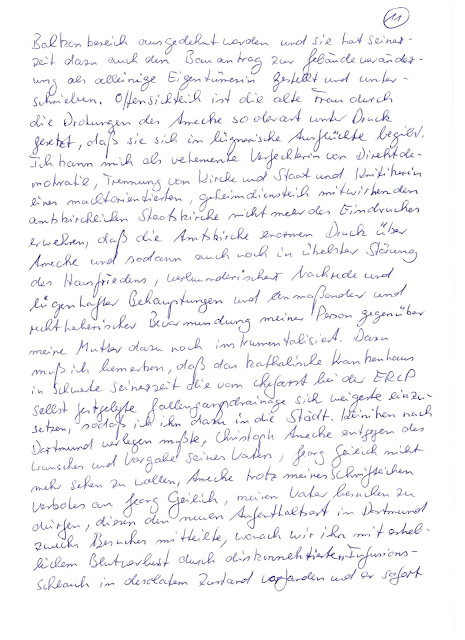 11
Balkonbereich ausgedehnt worden und sie hat seiner-
zeit dazu auch den Bauantrag zur Geländeveränder-
ung als alleinige Eigentümerin gestellt und unter-
schrieben. Offensichtlich ist die alte Frau durch
die Drohungen des Amecke so derart unter Druck
gesetzt, daß sie sich in lügnerische Ausflüchte begibt.
Ich kann mich als vehemente Verfechterin von Direktde-
mokratie, Trennung von Kirche und Staat und Kritikerin
einer machtorientierten, geheimdienstlich mitwirkenden
amtskirchlichen Staatskirche nicht mehr des Eindruckes
erwehren, daß die Amtskirche enormen Druck über
Amecke und sodann auch noch in übelster Störung
des Hausfriedens, verleumderischer Nachrede und
lügenhafter Behauptungen und anmaßender und
rechthaberischer Bevormundung meiner Person gegenüber
meine Mutter dazu noch instrumentalisiert. Dazu
muß ich bemerken, daß das katholische Krankenhaus
in Schwerte seinerzeit die vom Chefarzt bei der ERCP
selbst festgelegte Gallengangsdrainage sich weigerte einzu-
setzen, sodaß ich ihn dazu in die Städt. Kliniken nach
Dortmund verlegen mußte, Christoph Amecke entgegen des
Wunsches und Vorgabe seines Vaters, Georg Geilich nicht
mehr sehen zu wollen, Amecke trotz meines schriftlichen
Verbotes an Georg Geilich, meinen Vater besuchen zu
dürfen, diesen den neuen Aufenthaltsort in Dortmund
zwecks Besuches mitteilte, wonach wir ihn mit erheb-
lichem Blutverlust durch diskonnektierten Infusions-
schlauch in desolatem Zustand vorfanden und er sofort